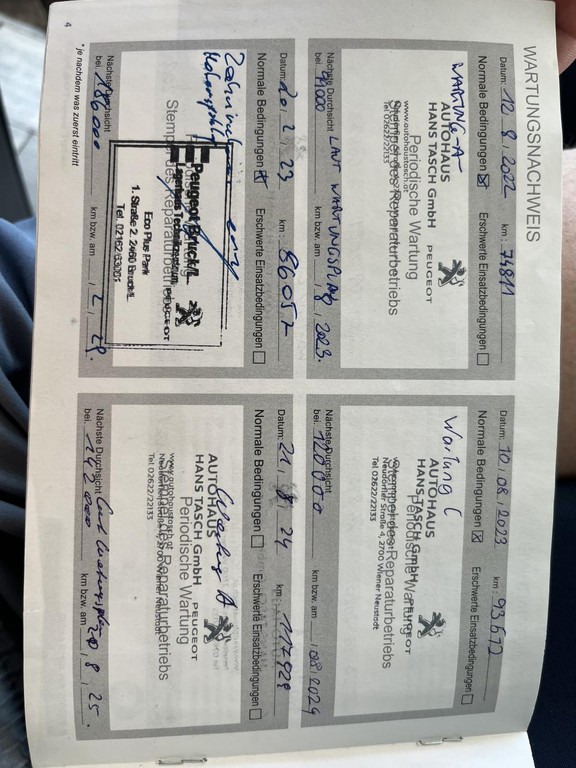 WARTUNGSNACHWEIS
Datum: 12, 8, 2022 km: 74811
Normale Bedingungen ☒ Erschwerte Einsatzbedingungen ☐
WARTUNG -A-
AUTOHAUS
HANS TASCH GmbH PEUGEOT
Periodische Wartung
www.autohaustasch.at
Stempel des Reparaturbetriebs
Tel 02622/22133
Nächste Durchsicht LAUT WARTUNGSPLAN
bei 99000 km bzw. am , 8, 2023.
Datum: 10, 08, 2023 km: 93.672
Normale Bedingungen ☒ Erschwerte Einsatzbedingungen ☐
Wartung C
AUTOHAUS
HANS TASCH GmbH PEUGEOT
Periodische Wartung
Stempel des Reparaturbetriebs
Neudorfler Straße 4, 2700 Wiener Neustadt
Tel 02622/22133
Nächste Durchsicht
bei 120000 km bzw. am , 08, 2024
Datum: 20, 2, 23 km: 86057
Normale Bedingungen ☒ Erschwerte Einsatzbedingungen ☐
Stempel des Reparaturbetriebs
Peugeot Bruck/L.
PEUGEOT
Eco Plus Park
1. Straße 2, 2460 Bruck/L.
Nächste Durchsicht
bei km bzw. am , 2,
Datum: 21, 8, 24 km: 117928
Normale Bedingungen ☐ Erschwerte Einsatzbedingungen ☐
A
AUTOHAUS
HANS TASCH GmbH PEUGEOT
Periodische Wartung
www.autohaustasch.at
Stempel des Reparaturbetriebs
Tel 02622/22133
Nächste Durchsicht
bei 142000 km bzw. am 20, 8, 25.
* je nachdem was zuerst eintritt
4